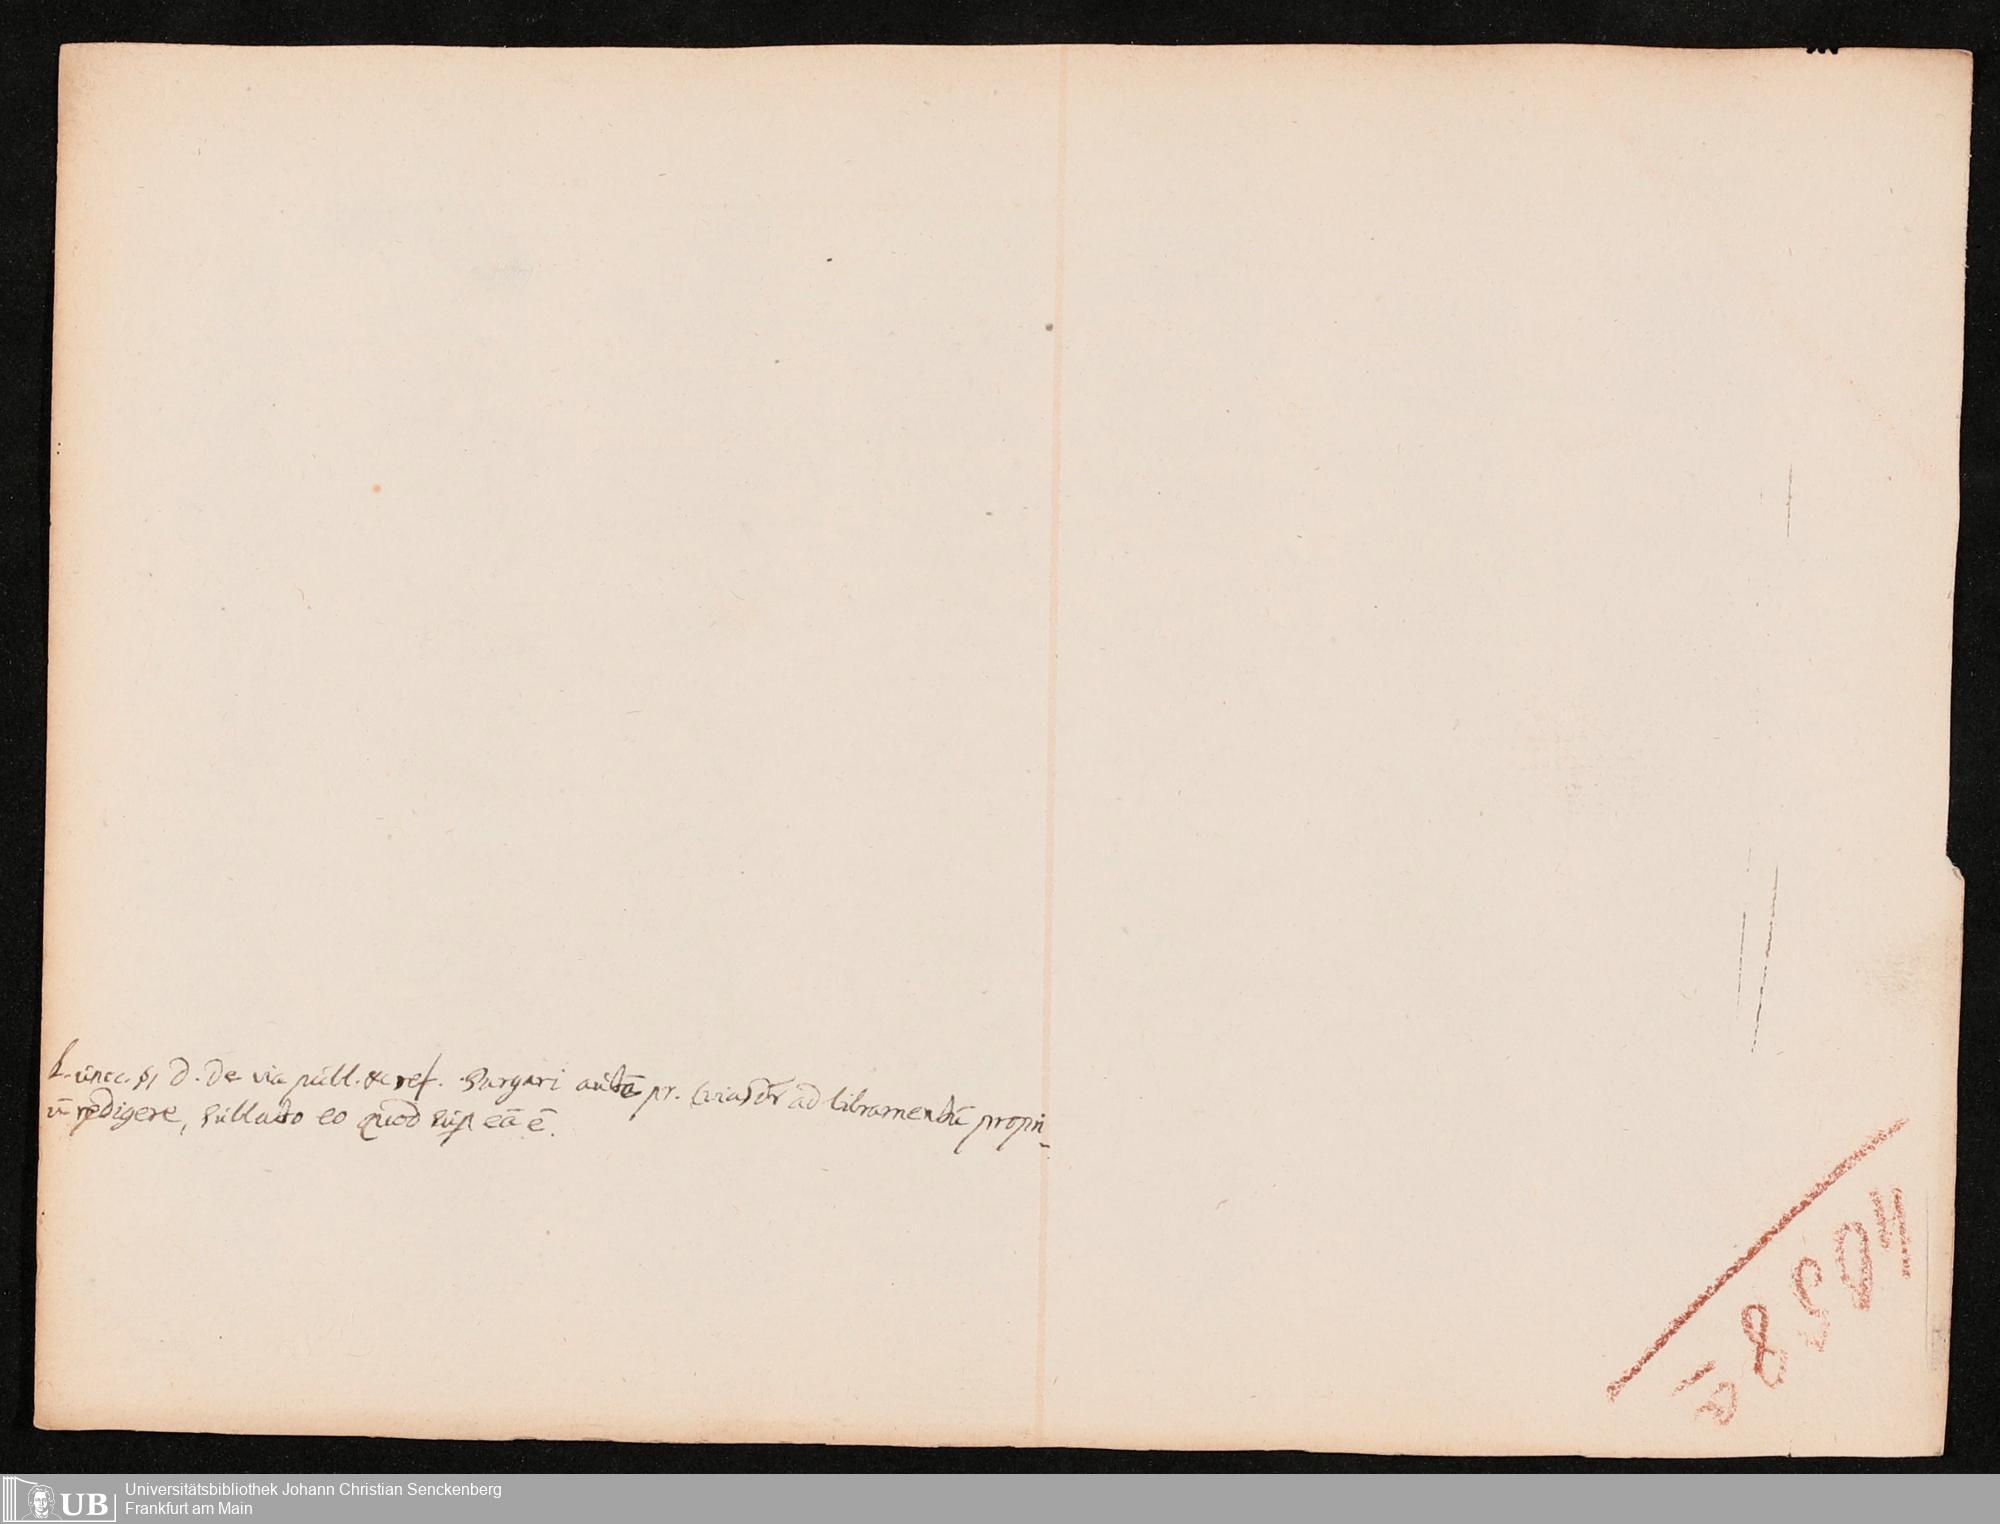 L. unic. §1 D. De via publ. &c ref. Purgari autē pr. (via) dr ad libramentū propri-
ū redigere, sublato eo quod sup eā ē.
48504
UB Universitätsbibliothek Johann Christian Senckenberg
Frankfurt am Main